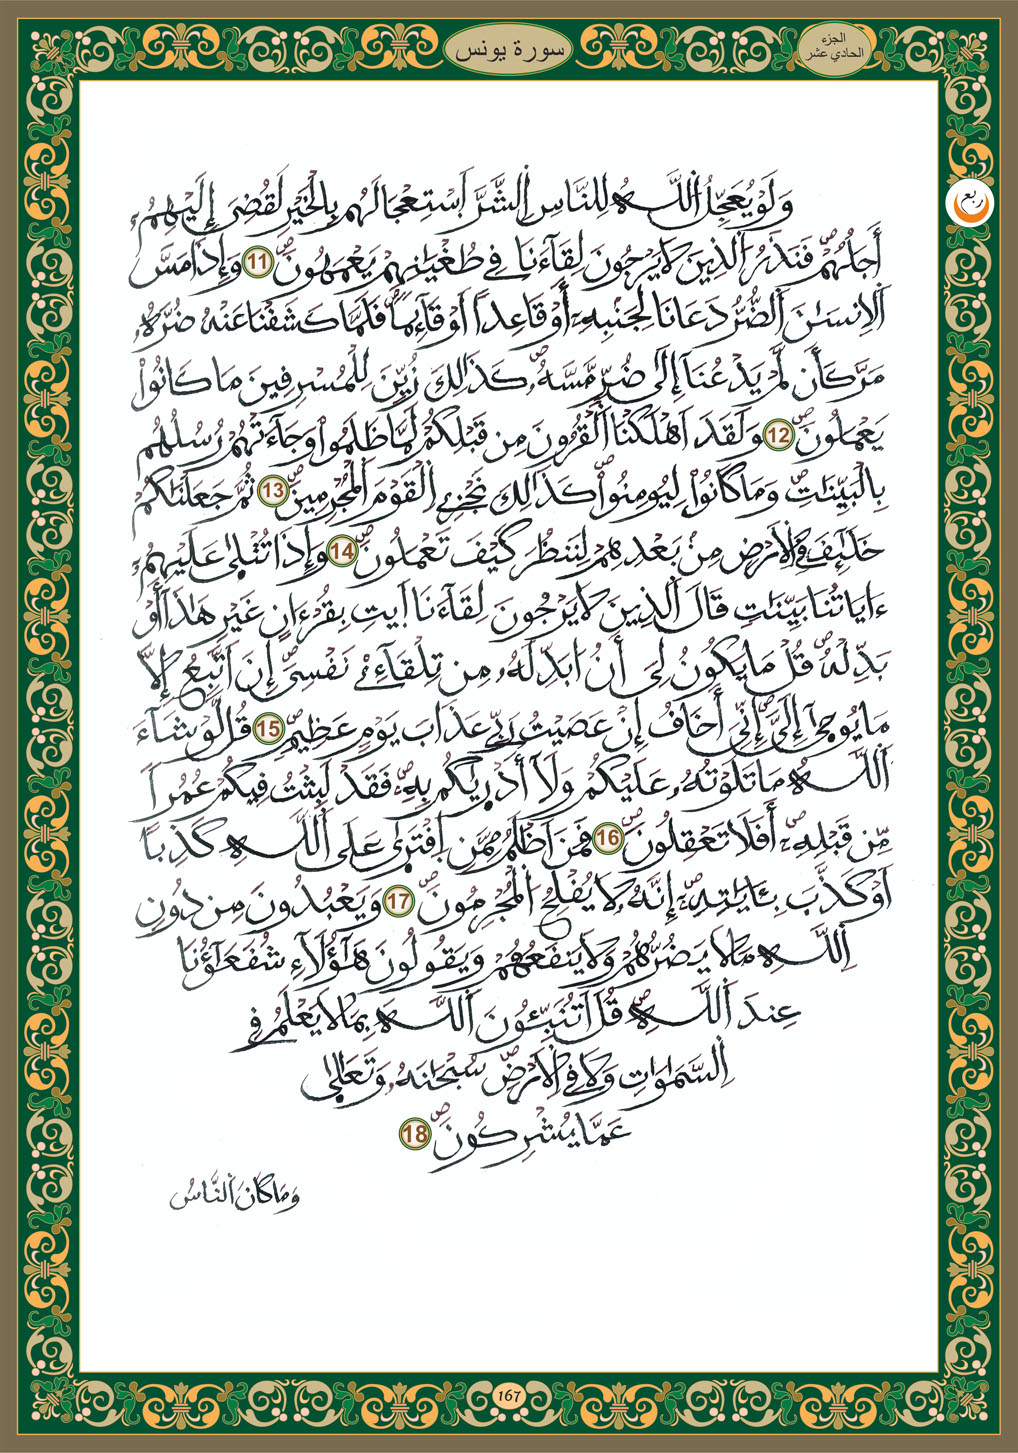 سورة يونس
الجزء
الحادي عشر
ربع
وَلَوْ يُعَجِّلُ اُ۬للَّهُ لِلنَّاسِ اِ۬لشَّرَّ اَ۪سْتِعْجَالَهُم بِالْخَيْرِ لَقُضِيَ إِلَيْهِمُۥٓ
أَجَلُهُمْ فَنَذَرُ اُ۬لذِينَ لَا يَرْجُونَ لِقَآءَنَا فِي طُغْيَٰنِهِمْ يَعْمَهُونَ 11 وَإِذَا مَسَّ
اَ۬لِانسَٰنَ اَ۬لضُّرُّ دَعَانَا لِجَنۢبِهِۦٓ أَوْ قَاعِداً اَوْ قَآئِماً فَلَمَّا كَشَفْنَا عَنْهُ ضُرَّهُۥ
مَرَّ كَأَن لَّمْ يَدْعُنَآ إِلَىٰ ضُرٍّ مَّسَّهُۥ كَذَٰلِكَ زُيِّنَ لِلْمُسْرِفِينَ مَا كَانُواْ
يَعْمَلُونَ 12 وَلَقَدَ اَهْلَكْنَا اَ۬لْقُرُونَ مِن قَبْلِكُمْ لَمَّا ظَلَمُواْ وَجَآءَتْهُمْ رُسُلُهُم
بِالْبَيِّنَٰتِ وَمَا كَانُواْ لِيُومِنُواْ كَذَٰلِكَ نَجْزِي اِ۬لْقَوْمَ اَ۬لْمُجْرِمِينَ 13 ثُمَّ جَعَلْنَٰكُمْ
خَلَٰٓئِفَ فِي اِ۬لَارْضِ مِنۢ بَعْدِهِمْ لِنَنظُرَ كَيْفَ تَعْمَلُونَ 14 وَإِذَا تُتْلَىٰ عَلَيْهِمُۥٓ
ءَايَاتُنَا بَيِّنَٰتٍ قَالَ اَ۬لذِينَ لَا يَرْجُونَ لِقَآءَنَا اَ۪يتِ بِقُرْءَانٍ غَيْرِ هَٰذَا أَوْ
بَدِّلْهُ قُلْ مَا يَكُونُ لِيَ أَنُ ابَدِّلَهُۥ مِن تِلْقَآءِےْ نَفْسِيَ إِنَ اَتَّبِعُ إِلَّا
مَا يُوحَىٰٓ إِلَيَّ إِنِّيَ أَخَافُ إِنْ عَصَيْتُ رَبِّي عَذَابَ يَوْمٍ عَظِيمٍ 15 قُل لَّوْ شَآءَ
اَ۬للَّهُ مَا تَلَوْتُهُۥ عَلَيْكُمْ وَلَآ أَدْر۪يٰكُم بِهِۦ فَقَدْ لَبِثْتُ فِيكُمْ عُمُراً
مِّن قَبْلِهِۦٓ أَفَلَا تَعْقِلُونَ 16 فَمَنَ اَظْلَمُ مِمَّنِ اِ۪فْتَر۪ىٰ عَلَى اَ۬للَّهِ كَذِباً
اَوْ كَذَّبَ بِـَٔايَٰتِهِۦٓ إِنَّهُۥ لَا يُفْلِحُ اُ۬لْمُجْرِمُونَ 17 وَيَعْبُدُونَ مِن دُونِ
اِ۬للَّهِ مَا لَا يَضُرُّهُمْ وَلَا يَنفَعُهُمْ وَيَقُولُونَ هَٰٓؤُلَآءِ شُفَعَٰٓؤُنَا
عِندَ اَ۬للَّهِ قُلَ اَتُنَبِّـُٔونَ اَ۬للَّهَ بِمَا لَا يَعْلَمُ فِي
اِ۬لسَّمَٰوَٰتِ وَلَا فِي اِ۬لَارْضِ سُبْحَٰنَهُۥ وَتَعَٰلَىٰ
عَمَّا يُشْرِكُونَ 18
وَمَا كَانَ اَ۬لنَّاسُ
167